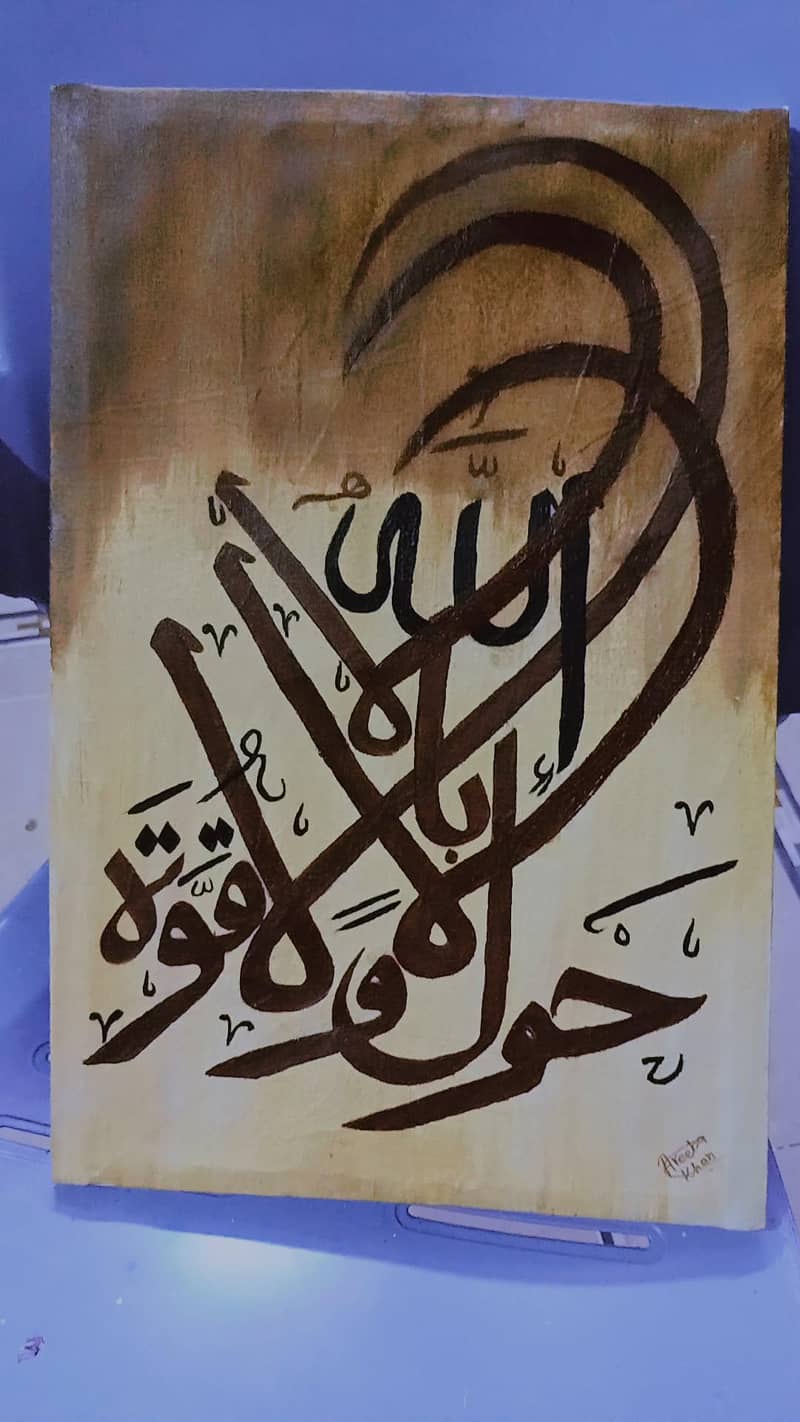 لا حول ولا قوة إلا بالله
Areeba
Khan